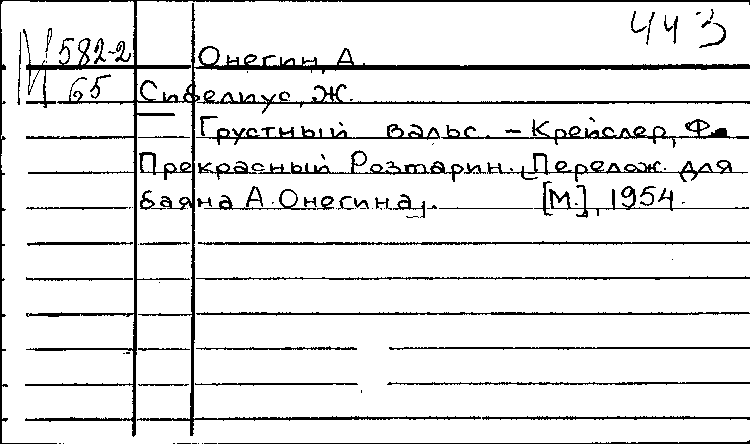 443
М 582-2 Онегин, А.
65 Сибелиус, Ж.
Грустный вальс. – Крейслер, Ф.
Прекрасный Розмарин. [Перелож. для
баяна А. Онегина]. [М.], 1954.